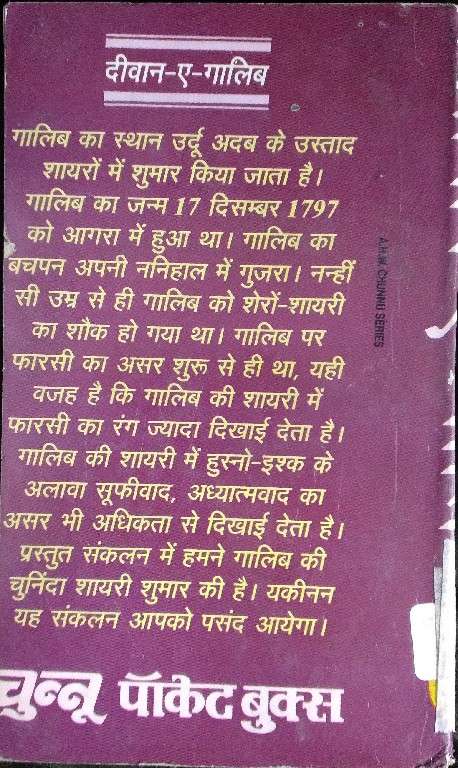 दीवान-ए-गालिब
गालिब का स्थान उर्दू अदब के उस्ताद
शायरों में शुमार किया जाता है।
गालिब का जन्म 17 दिसम्बर 1797
को आगरा में हुआ था। गालिब का
बचपन अपनी ननिहाल में गुजरा। नन्हीं
सी उम्र से ही गालिब को शेरों-शायरी
का शौक हो गया था। गालिब पर
फारसी का असर शुरू से ही था, यही
वजह है कि गालिब की शायरी में
फारसी का रंग ज्यादा दिखाई देता है।
गालिब की शायरी में हुस्नो-इश्क के
अलावा सूफीवाद, अध्यात्मवाद का
असर भी अधिकता से दिखाई देता है।
प्रस्तुत संकलन में हमने गालिब की
चुनिंदा शायरी शुमार की है। यकीनन
यह संकलन आपको पसंद आयेगा।
चुन्नू पॉकेट बुक्स
CHUNNU SERIES